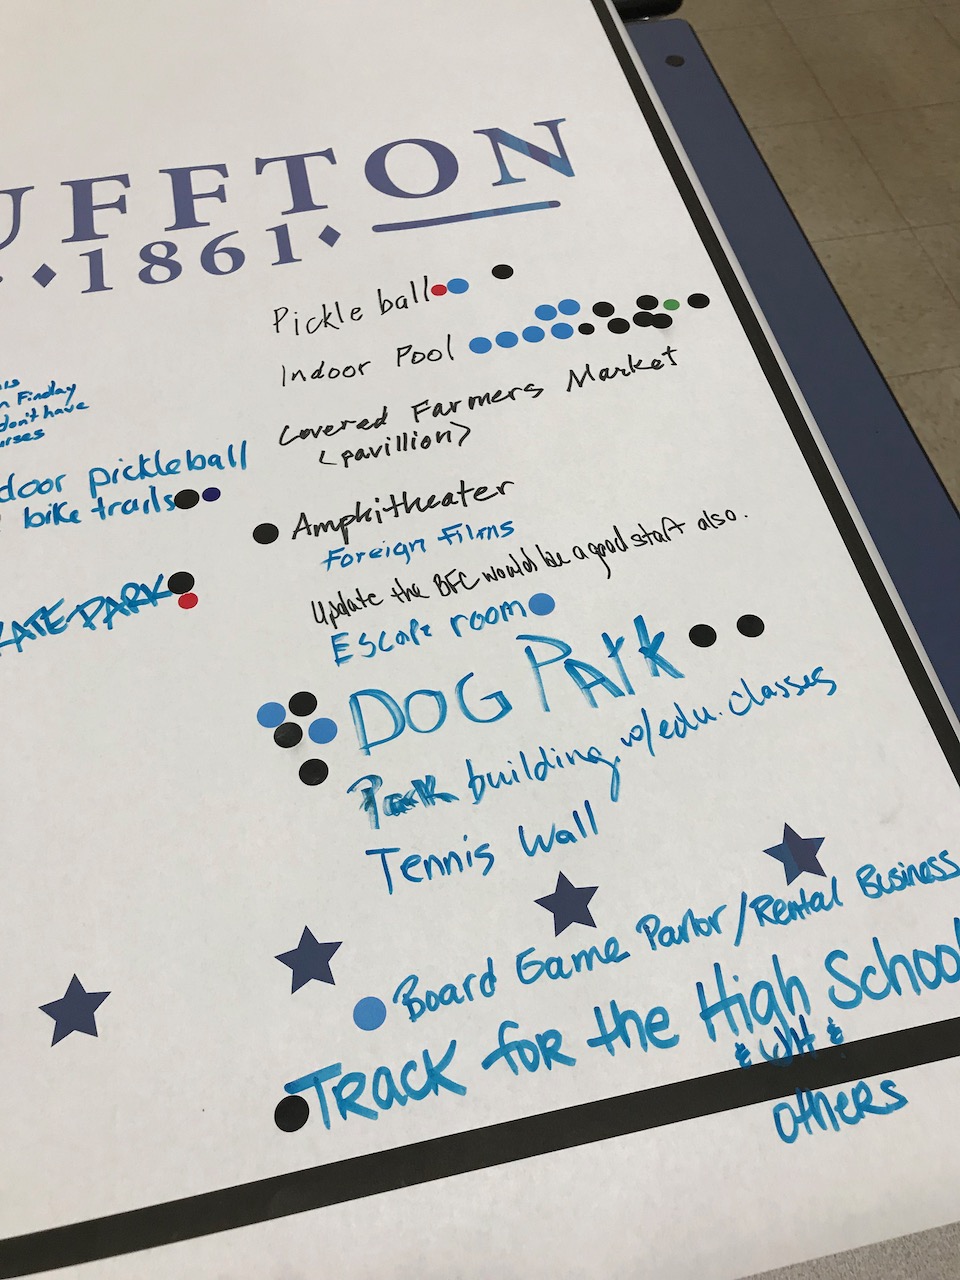 UFFTON
1861
Pickle ball
Indoor Pool
Covered Farmers Market
<pavillion>
n Finday
don't have
door pickleball
bike trails
Amphitheater
Foreign Films
Update the BFC would be a good start also.
KATE PARK
Escape room
DOG PArk
Park building w/edu. classes
Tennis Wall
Board Game Parlor/Rental Business
TRACK for the High School
& UH &
others